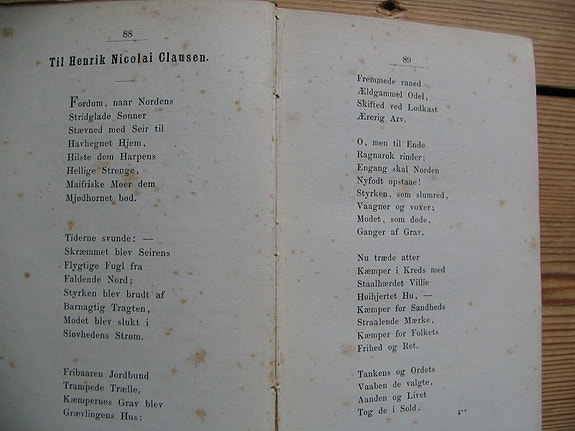 88
Til Henrik Nicolai Clausen.
Fordum, naar Nordens
Stridglade Sønner
Stævned med Seir til
Havhegnet Hjem,
Hilste dem Harpens
Hellige Strenge,
Maifriske Møer dem
Mjødhornet bød.
Tiderne svunde: —
Skræmmet blev Seirens
Flygtige Fugl fra
Faldende Nord;
Styrken blev brudt af
Barnagtig Tragten,
Modet blev slukt i
Sløvhedens Strøm.
Fribaaren Jordbund
Trampede Trælle,
Kæmpernes Grav blev
Grævlingens Hus;
89
Fremmede raned
Ældgammel Odel,
Skifted ved Lodkast
Ærerig Arv.
O, men til Ende
Ragnarok rinder;
Engang skal Norden
Nyfødt opstaae!
Styrken, som slumred,
Vaagner og voxer;
Modet, som døde,
Ganger af Grav.
Nu træde atter
Kæmper i Kreds med
Staalhærdet Villie
Høihjertet Hu, —
Kæmper for Sandheds
Straalende Mærke,
Kæmper for Folkets
Frihed og Ret.
Tankens og Ordets
Vaaben de valgte,
Aanden og Livet
Tog de i Sold.
4**